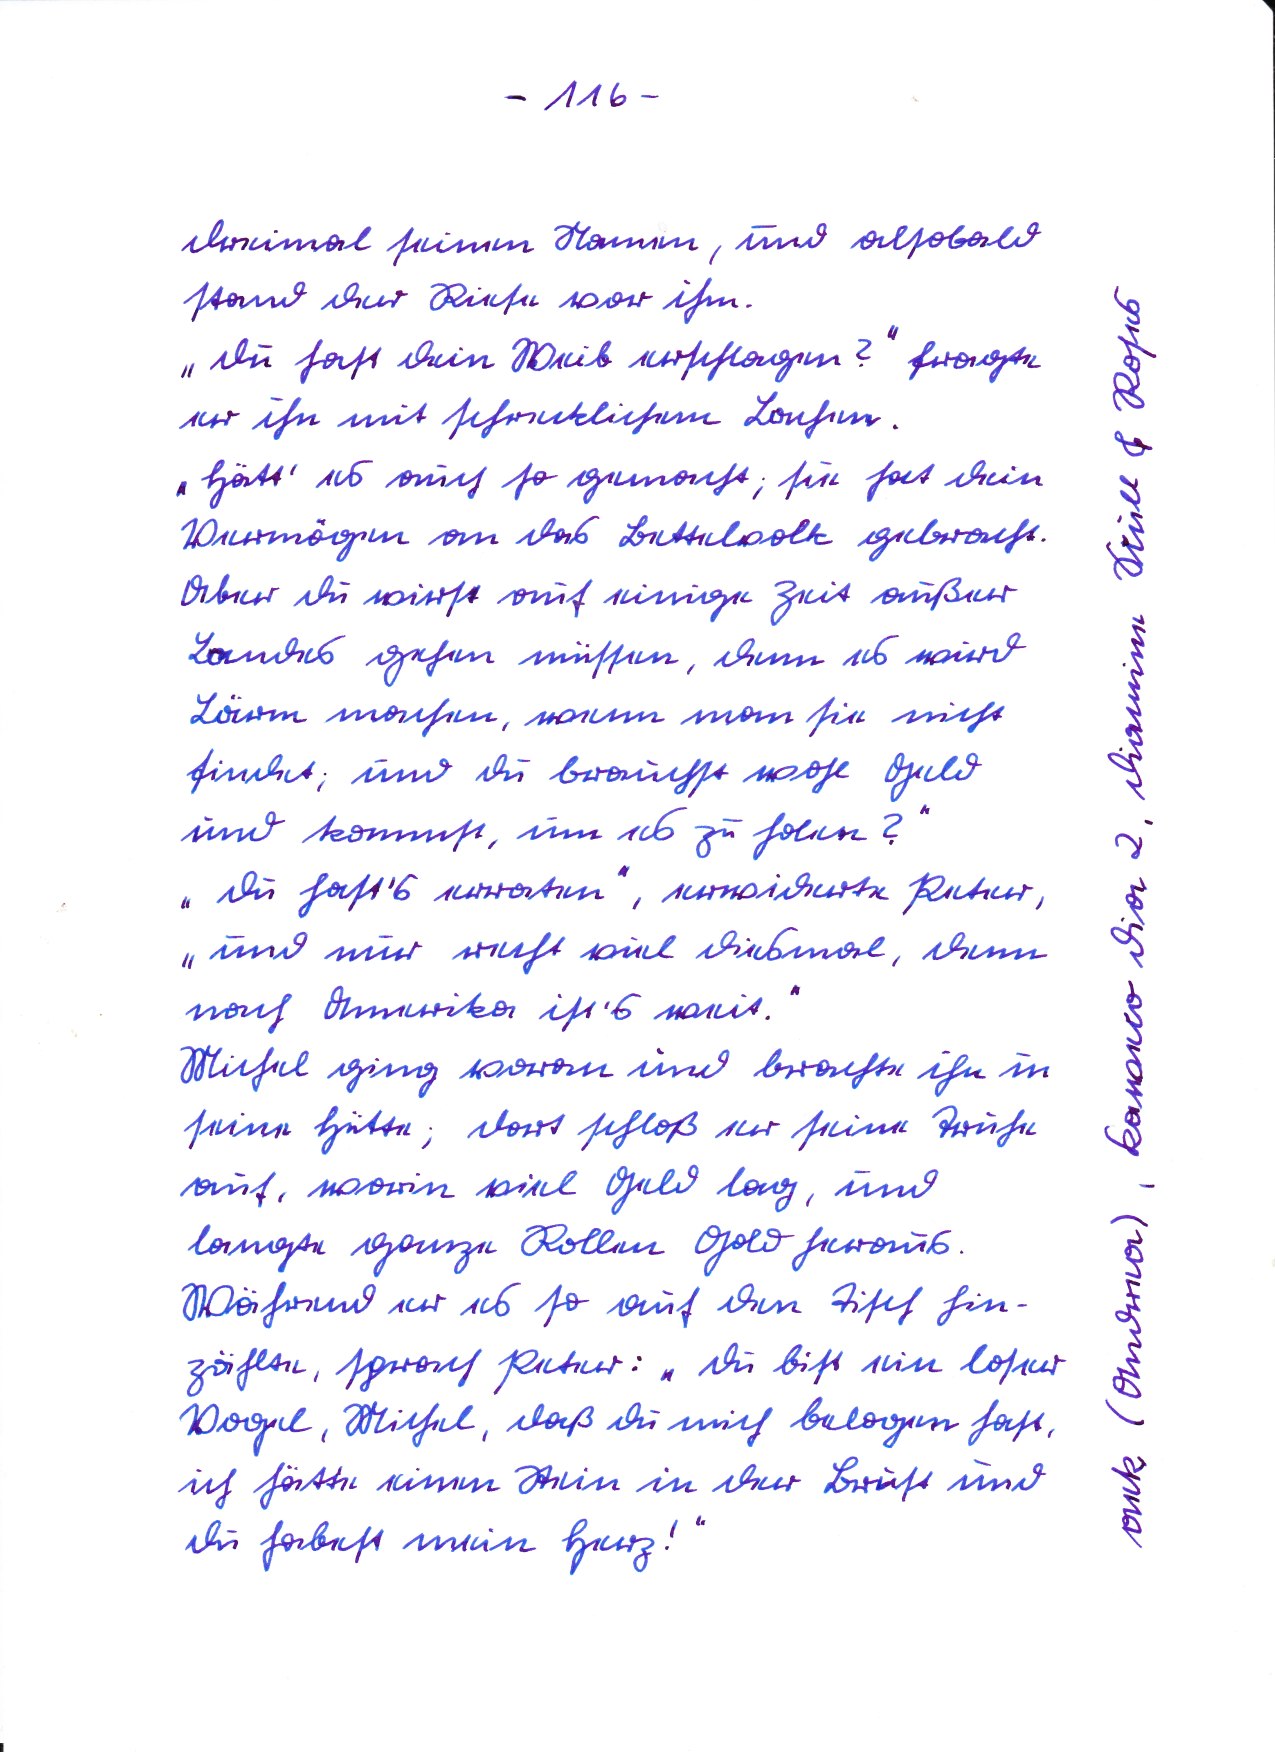 - 116 -
dreimal seinen Namen, und alsobald
stand der Riese vor ihm.
„Du hast dein Weib erschlagen?“ fragte
er ihn mit schrecklichem Lachen.
„Hätt' es auch so gemacht; sie hat dein
Vermögen an das Bettelvolk gebracht.
Aber du wirst auf einige Zeit außer
Landes gehen müssen, denn es wird
Lärm machen, wenn man sie nicht
findet; und du brauchst wohl Geld
und kommst, um es zu holen?“
„Du hast's erraten“, erwiderte Peter,
„und nur recht viel diesmal, denn
nach Amerika ist's weit.“
Michel ging voran und brachte ihn in
seine Hütte; dort schloß er seine Truhe
auf, worin viel Geld lag, und
langte ganze Rollen Gold heraus.
Während er es so auf den Tisch hin-
zählte, sprach Peter: „Du bist ein loser
Vogel, Michel, daß du mich belogen hast,
ich hätte einen Stein in der Brust und
du habest mein Herz!“
(Andrea), dia 2,